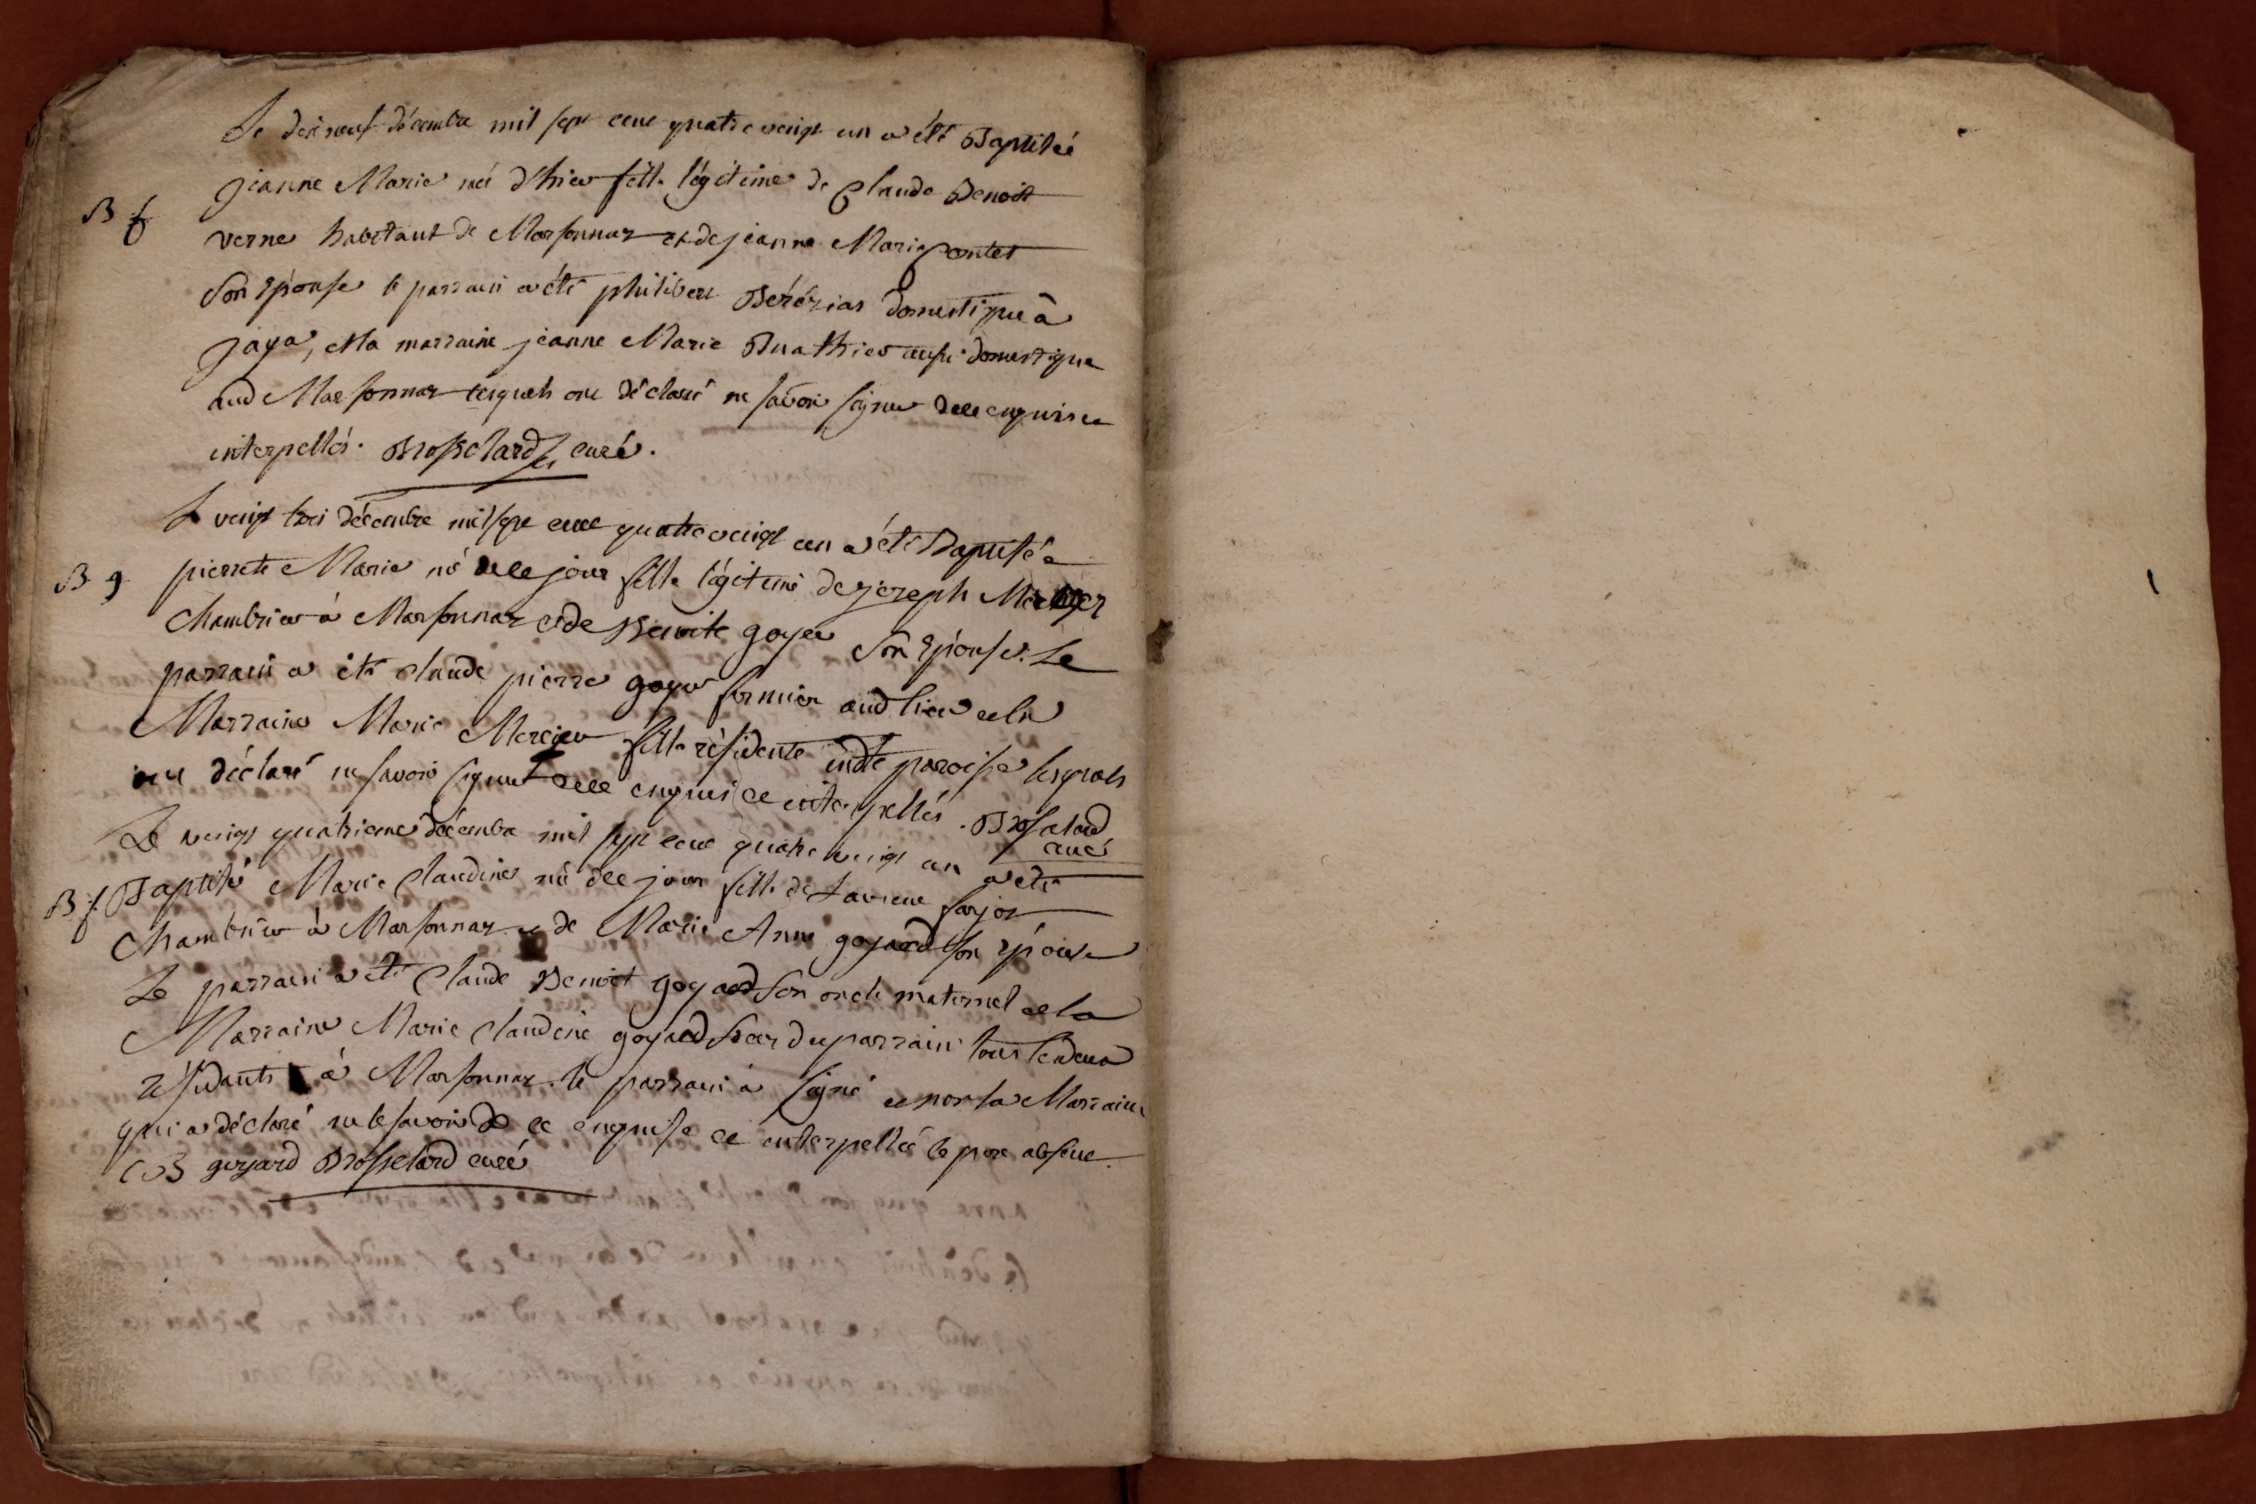 Le dixneuf décembre mil sept cent quatre vingt un a été Baptisée
B f
jeanne Marie née d'hier fille légitime de Claude Benoit
verne habitant de Marsonnaz et de jeanne Marie pontet
son Epouse le parrain a été philibert Bérézias domestique à
jaya, et la marraine jeanne Marie Buathier aussi domestique
aud Marsonnaz lesquels ont déclaré ne savoir signer de ce enquis et
interpellés. Brosselard curé.
Le vingt trois décembre mil sept cent quatre vingt un a été Baptisée
B g
pierrette Marie né de ce jour fille légitime de joseph
Chambrier à Marsonnaz et de Benoite goyer son Epouse. Le
parrain a été claude pierre goyer fermier aud lieu et la
Marraine Marie Mercier fille résidente en dte paroisse lesquels
ont déclaré ne savoir signer de ce enquis et interpellés. Brosselard
curé
Le vingt quatrieme décembre mil sept cent quatre vingt un a été
B f. Baptisé Marie Claudine né de ce jour fille de Laurent farjot
Chambrier à Marsonnaz et de Marie Anne goyard son Epouse
Le parrain a été Claude Benoit goyard son oncle maternel et la
Marraine Marie Claudine goyard sœur du parrain tous les deux
résidants à Marsonnaz. le parrain a signé et non la Marraine
qui a déclaré ne le savoir de ce enquise et interpellée le pere absent.
C B goyard Brosselard curé